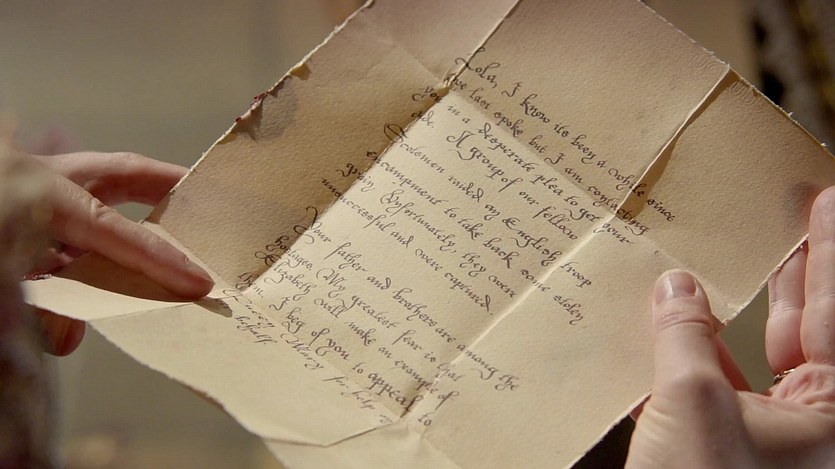 Lola, I know its been a while since
we last spoke but I am contacting
you in a desperate plea to get your
aide. A group of our fellow
Scotsmen raided an English troop
encampment to take back some stolen
grain. Unfortunately, they were
unsuccessful and were captured.
Your father and brothers are among the
hostages. My greatest fear is that
Elizabeth will make an example of
them. I beg of you to appeal to
Mary for help
behalf